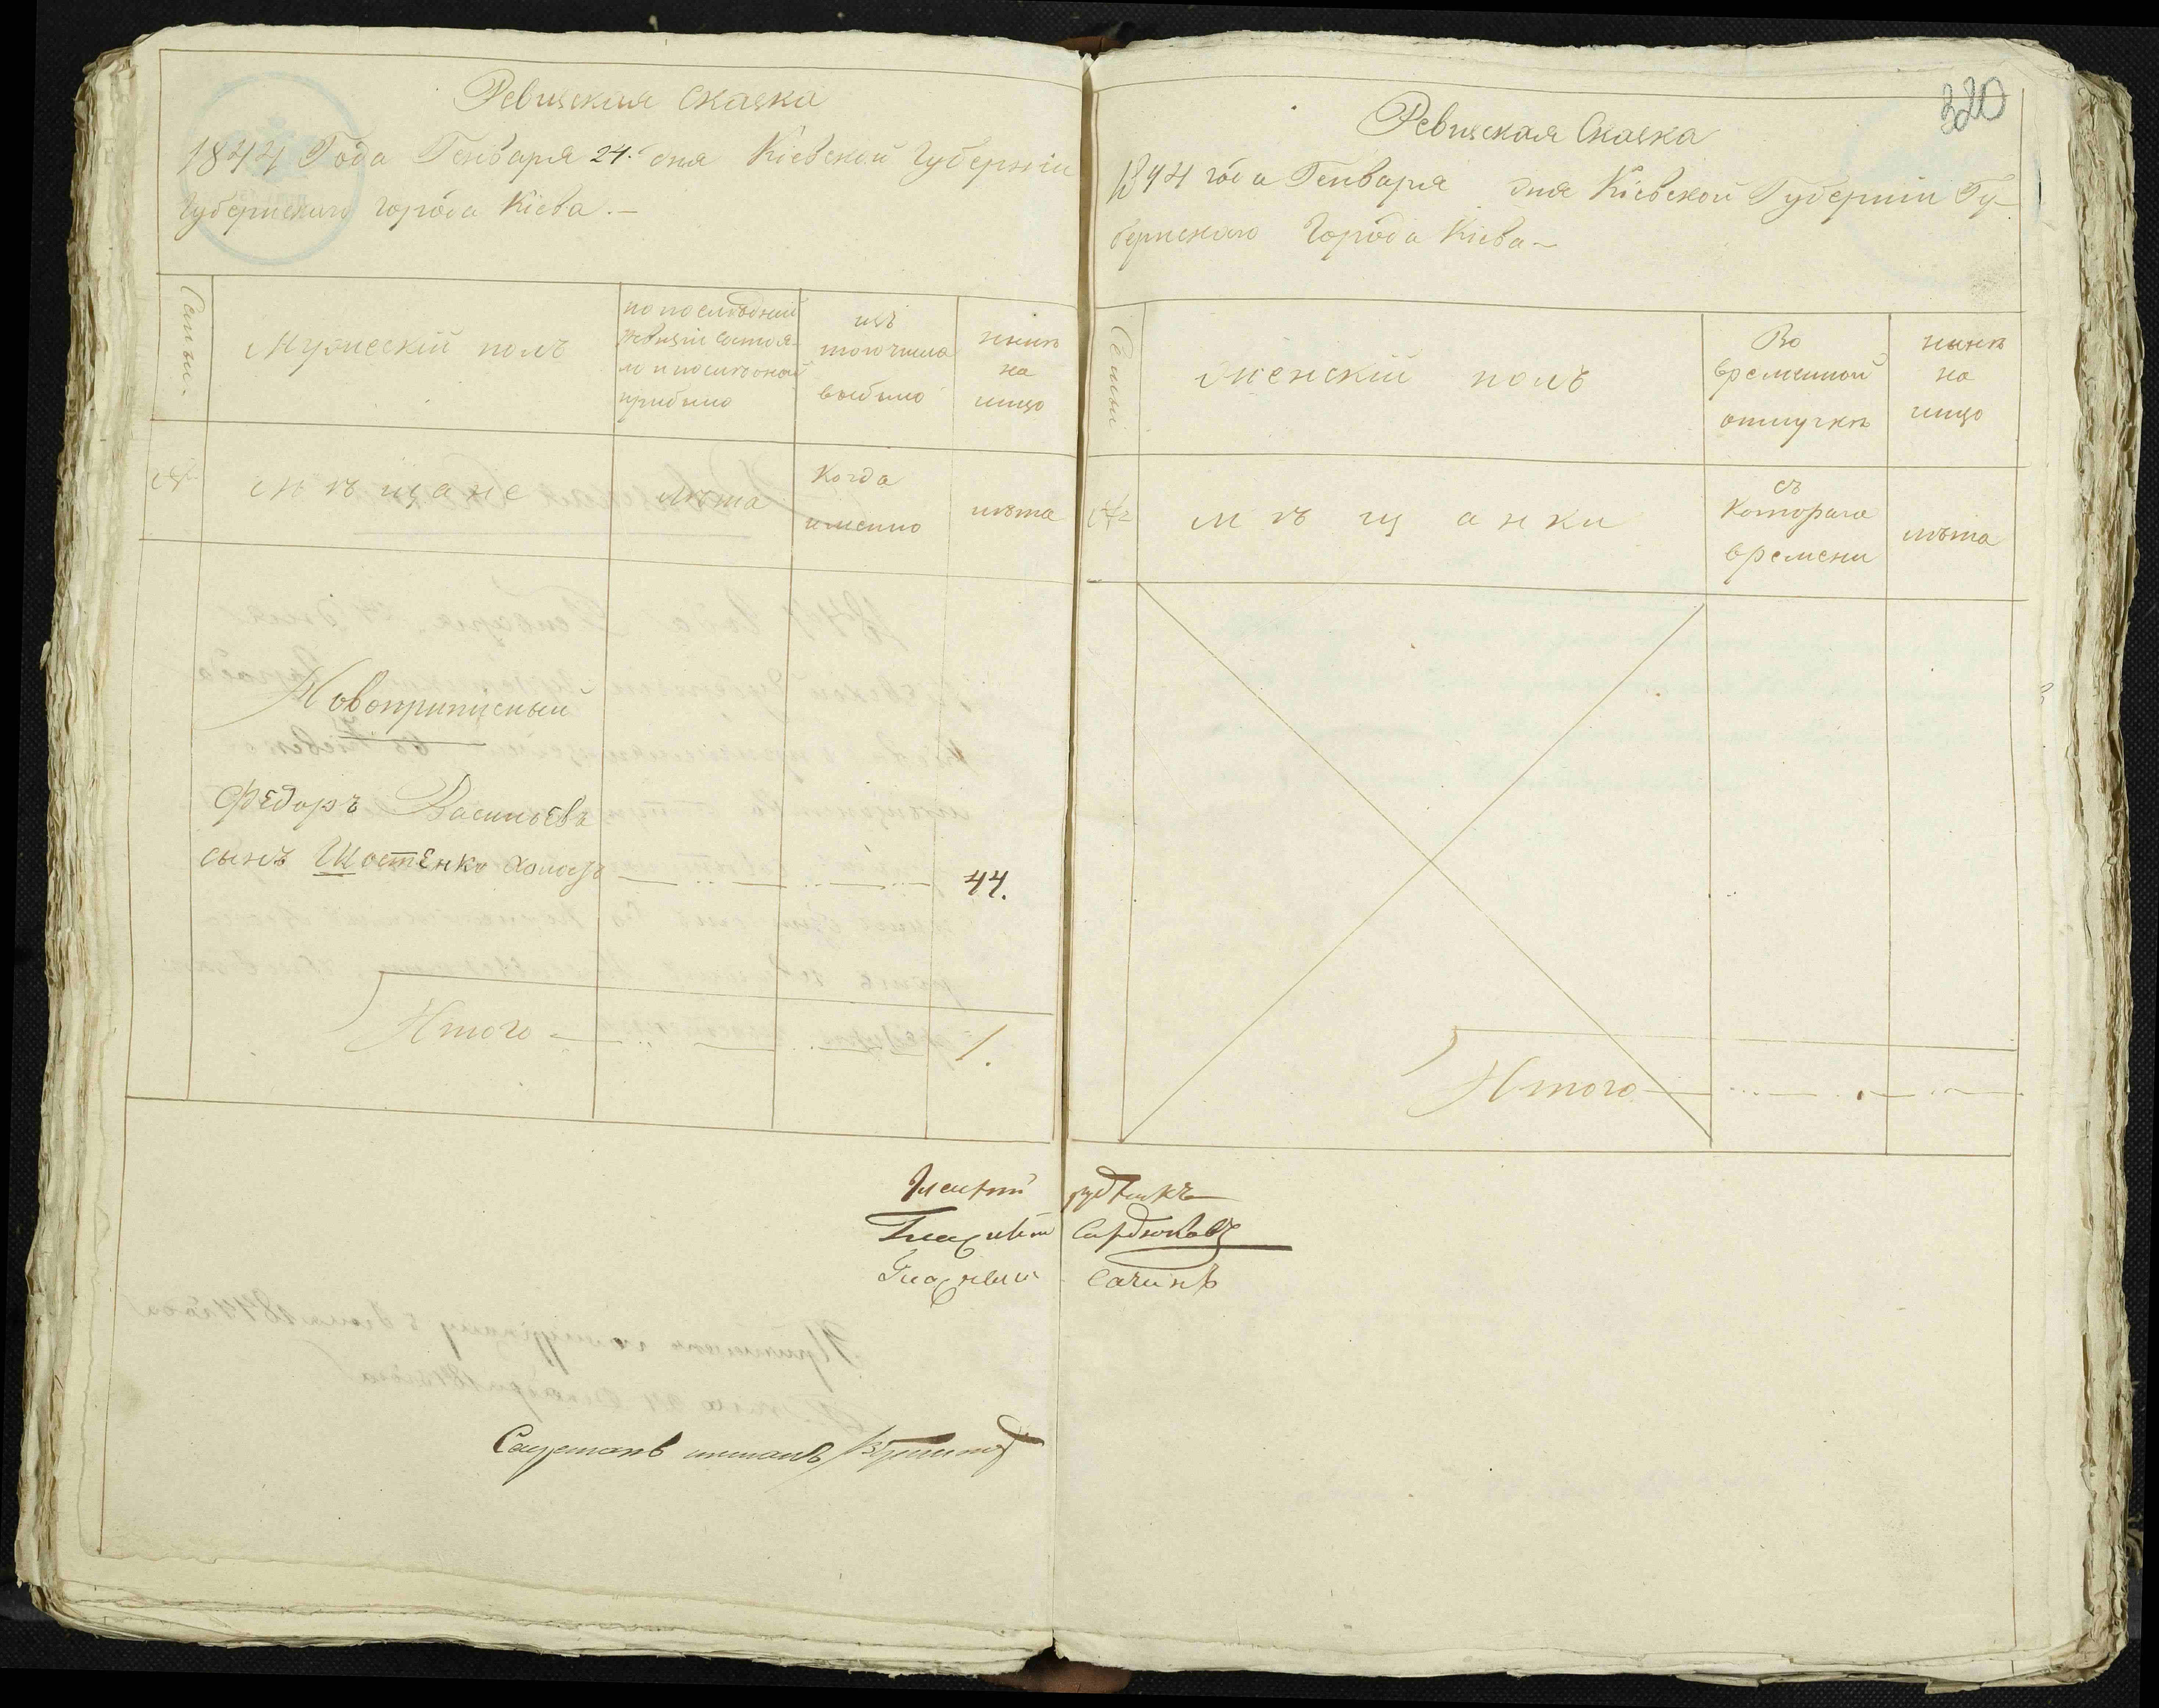 Ревизская Сказка
1844 Года Генваря 24. дня Кіевской Губерніи
Губернскаго города Кіева.–
Семьи.
Мужескій полъ
по последней
ревизіи состоя-
ло и после оной
прибыло
изъ
того числа
выбыло
ныне
на
лицо
№
мъщане
лъта
Когда
именно
лъта
Новоприписный
Федоръ Васильевъ
сынъ Шостенко холостъ
44.
Итого
1.
320
Ревизская Сказка
1844 года Генваря дня Кіевской Губерніи Гу-
бернскаго Города Кіева–
Семьи
Женскій полъ
Во
временной
отлучкъ
нынъ
на
лицо
№
мъщанки
съ
Котораго
времени
лъта
Итого
Гласный
Гласный Сердюковъ
Гласный